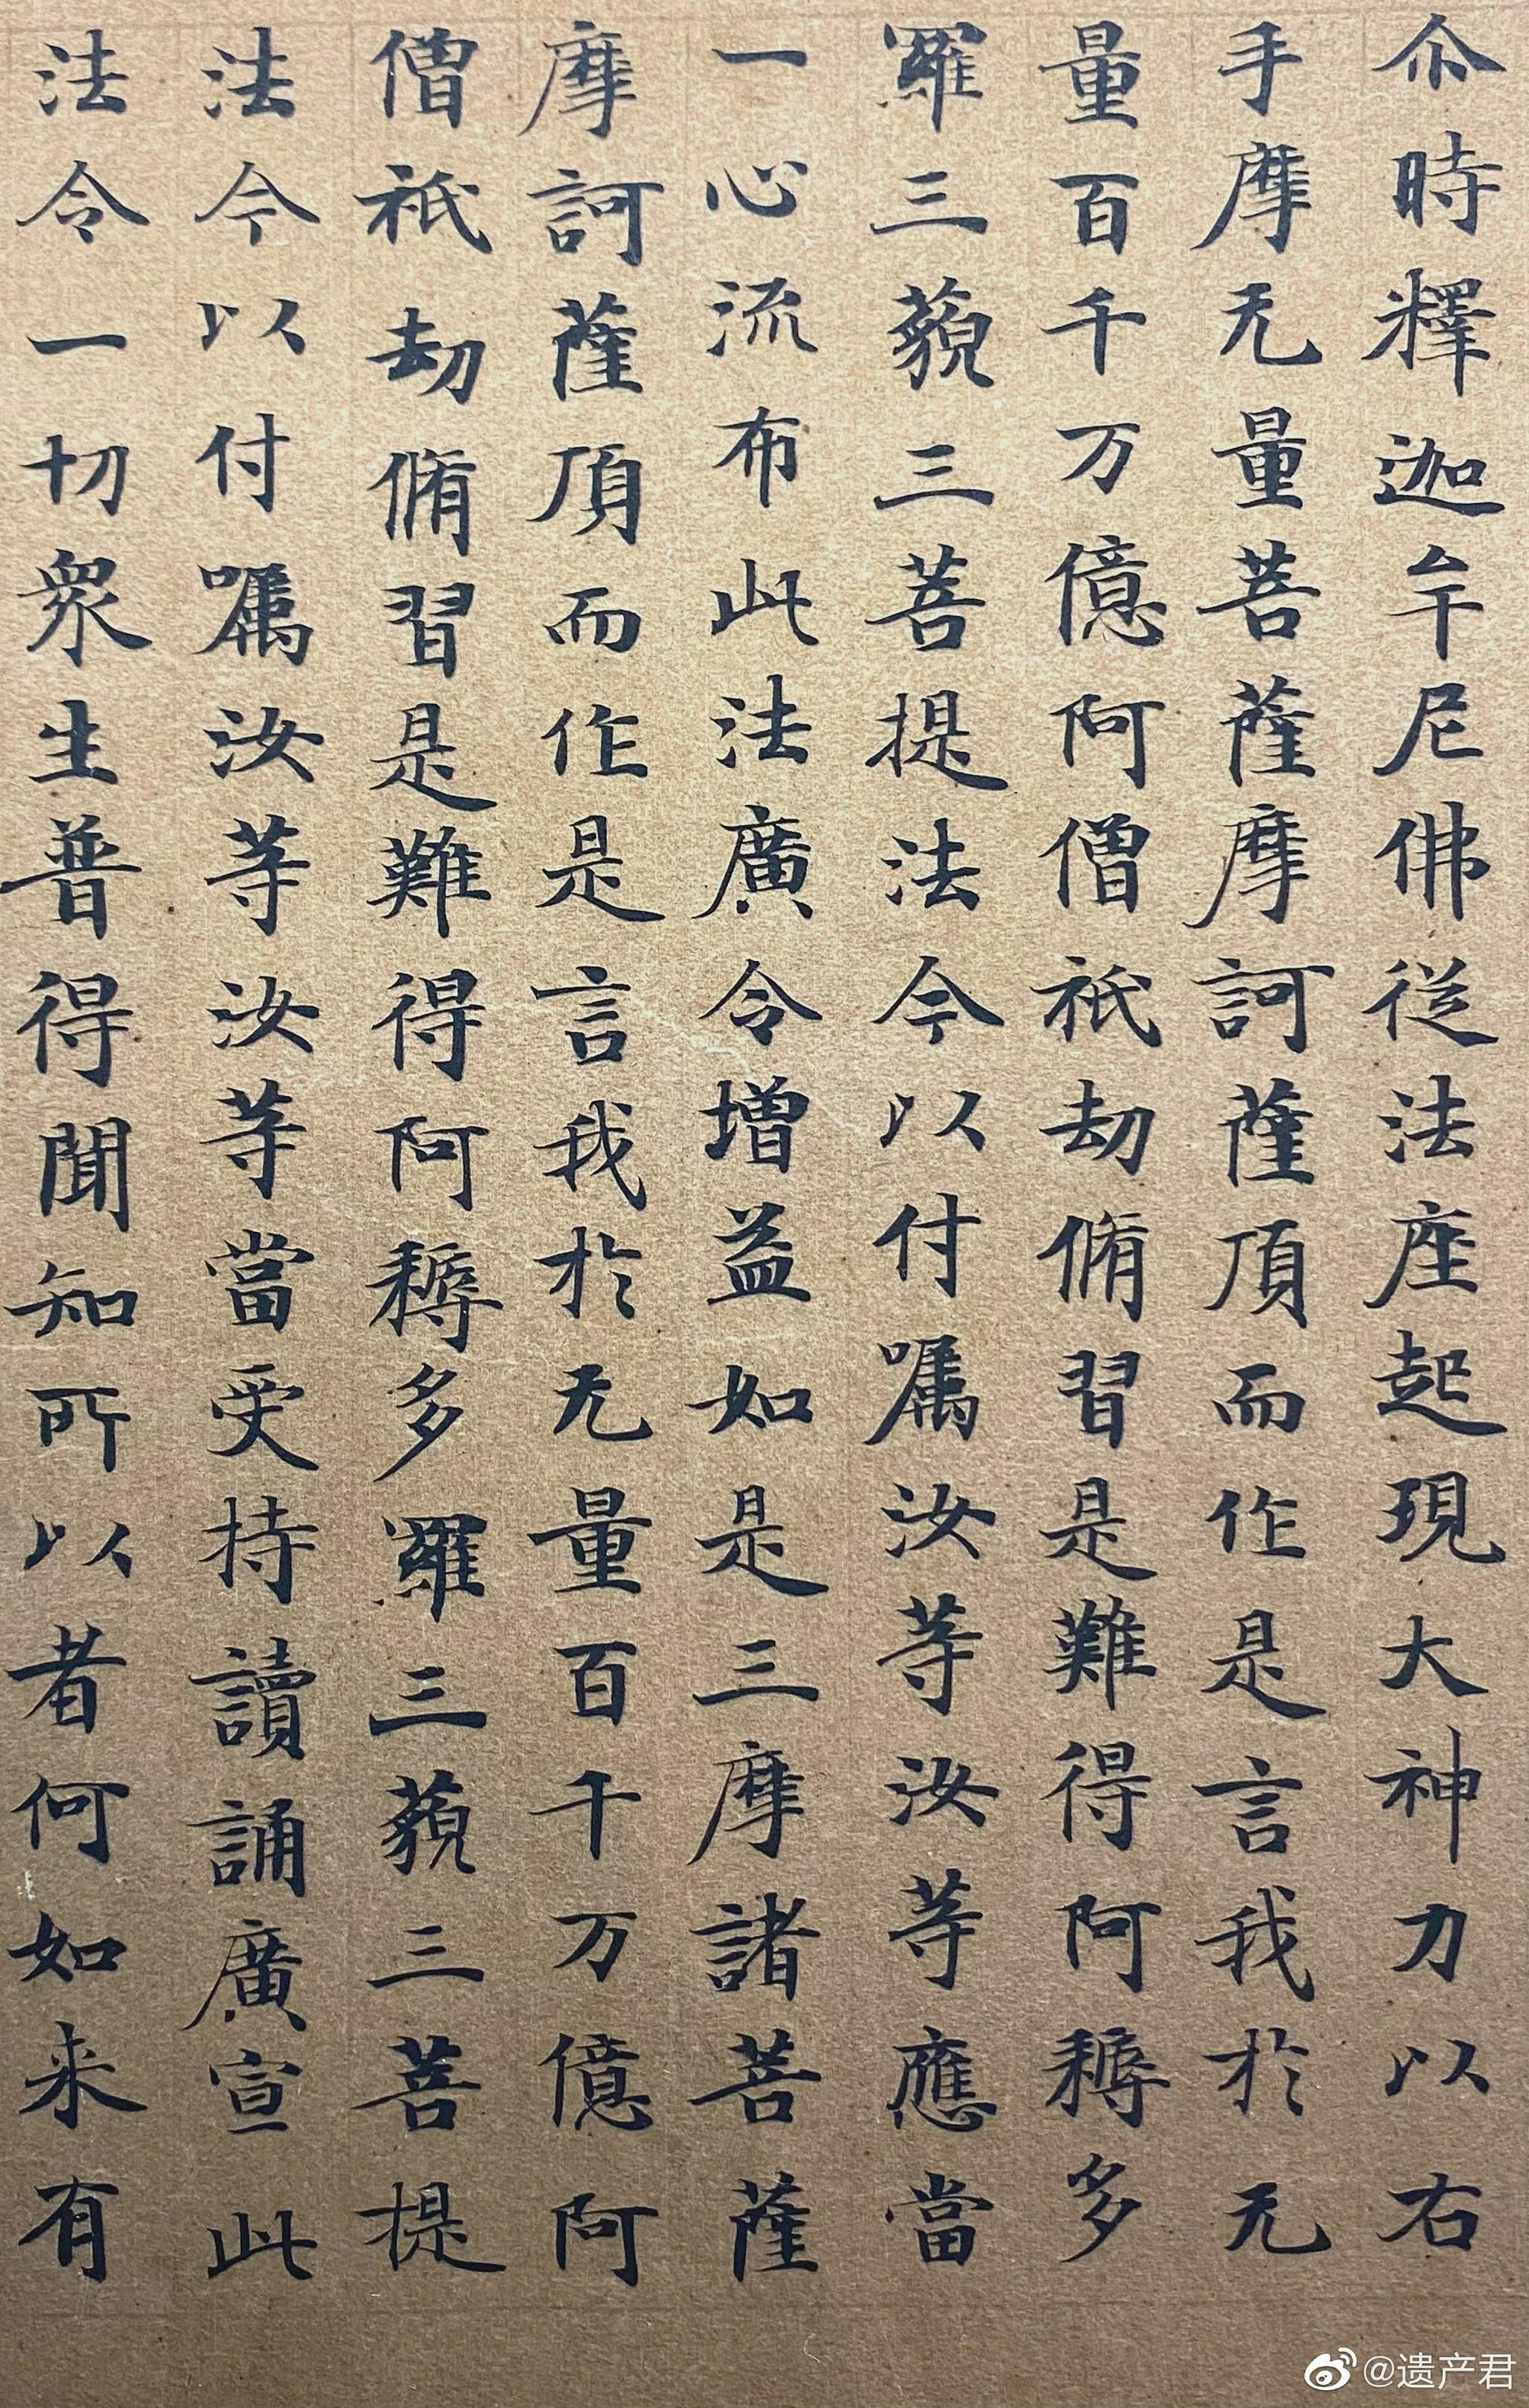 尒時釋迦牟尼佛從法座起現大神力以右
手摩无量菩薩摩訶薩頂而作是言我於无
量百千万億阿僧祇劫脩習是難得阿耨多
羅三藐三菩提法今以付嘱汝等汝等應當
一心流布此法廣令增益如是三摩諸菩薩
摩訶薩頂而作是言我於无量百千万億阿
僧祇劫脩習是難得阿耨多羅三藐三菩提
法今以付嘱汝等汝等當受持讀誦廣宣此
法令一切衆生普得聞知所以者何如来有
@遗产君